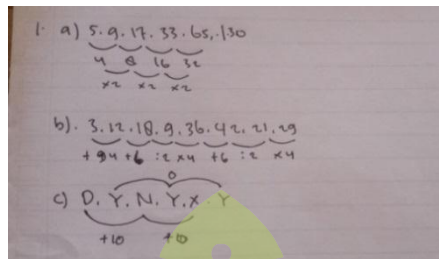 1. a) 5.9.17.33.65,.130
4 8 16 32
x2 x2 x2
b). 3.12.18.9.36.42.21.29
+94 +6 :2 x4 +6 :2 x4
0
c) D. Y. N. Y. X. Y
+10 +10